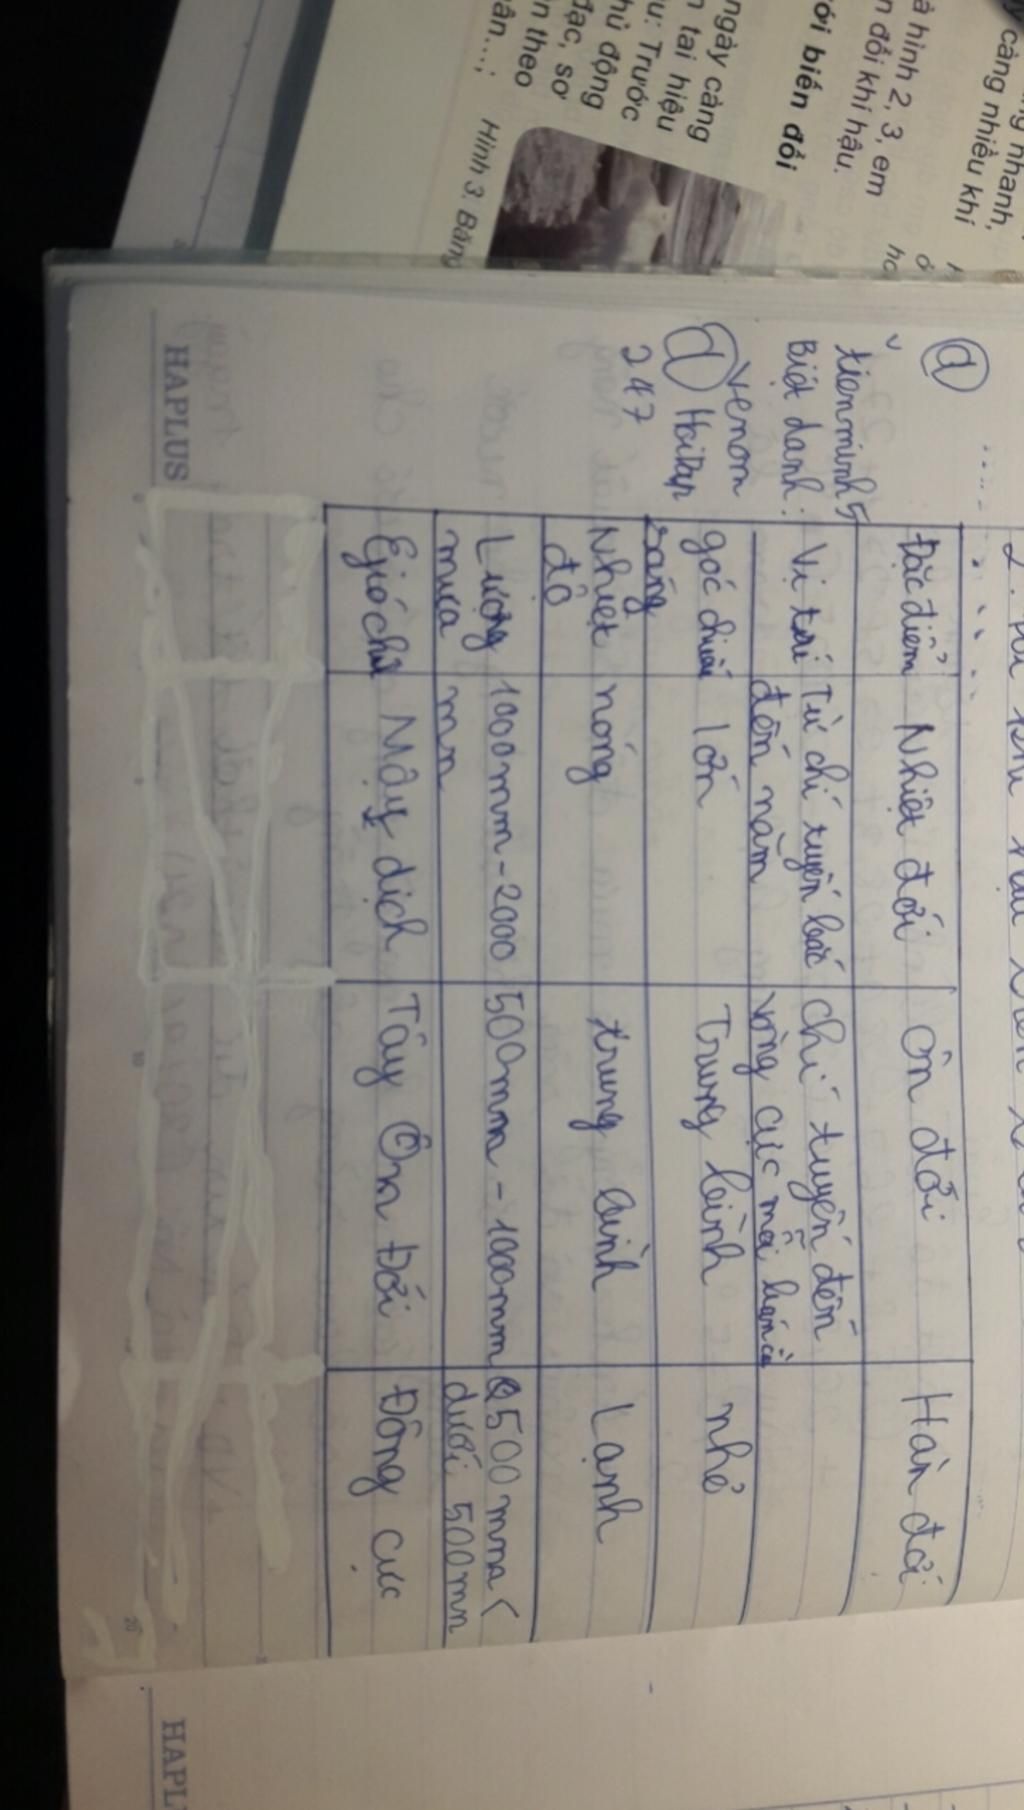 à hình 2, 3, em
n đổi khí hậu.
ới biến đổi
ngày càng
n tai hiệu
u: Trước
hủ động
đạc, sơ
n theo
ân...;
g nhanh,
càng nhiều khí
Hình 3. Băng
@
tienminh5
Biệt danh:
venom
@ Hoidap
247
Đặc điểm Nhiệt đới Ôn đới Hàn đới
Vị trí Từ chí tuyến bắc chí tuyến đến
đến nam vòng cực mỗi bán cầu
góc chiếu lớn Trung bình nhỏ
sáng
Nhiệt nóng trung bình Lạnh
độ
Lượng 1000mm-2000 500mm-1000mm 500mm<
mưa mm dưới 500mm
gió chủ Mậy dịch Tây Ôn Đới Đông cực
HAPLUS
HAPL